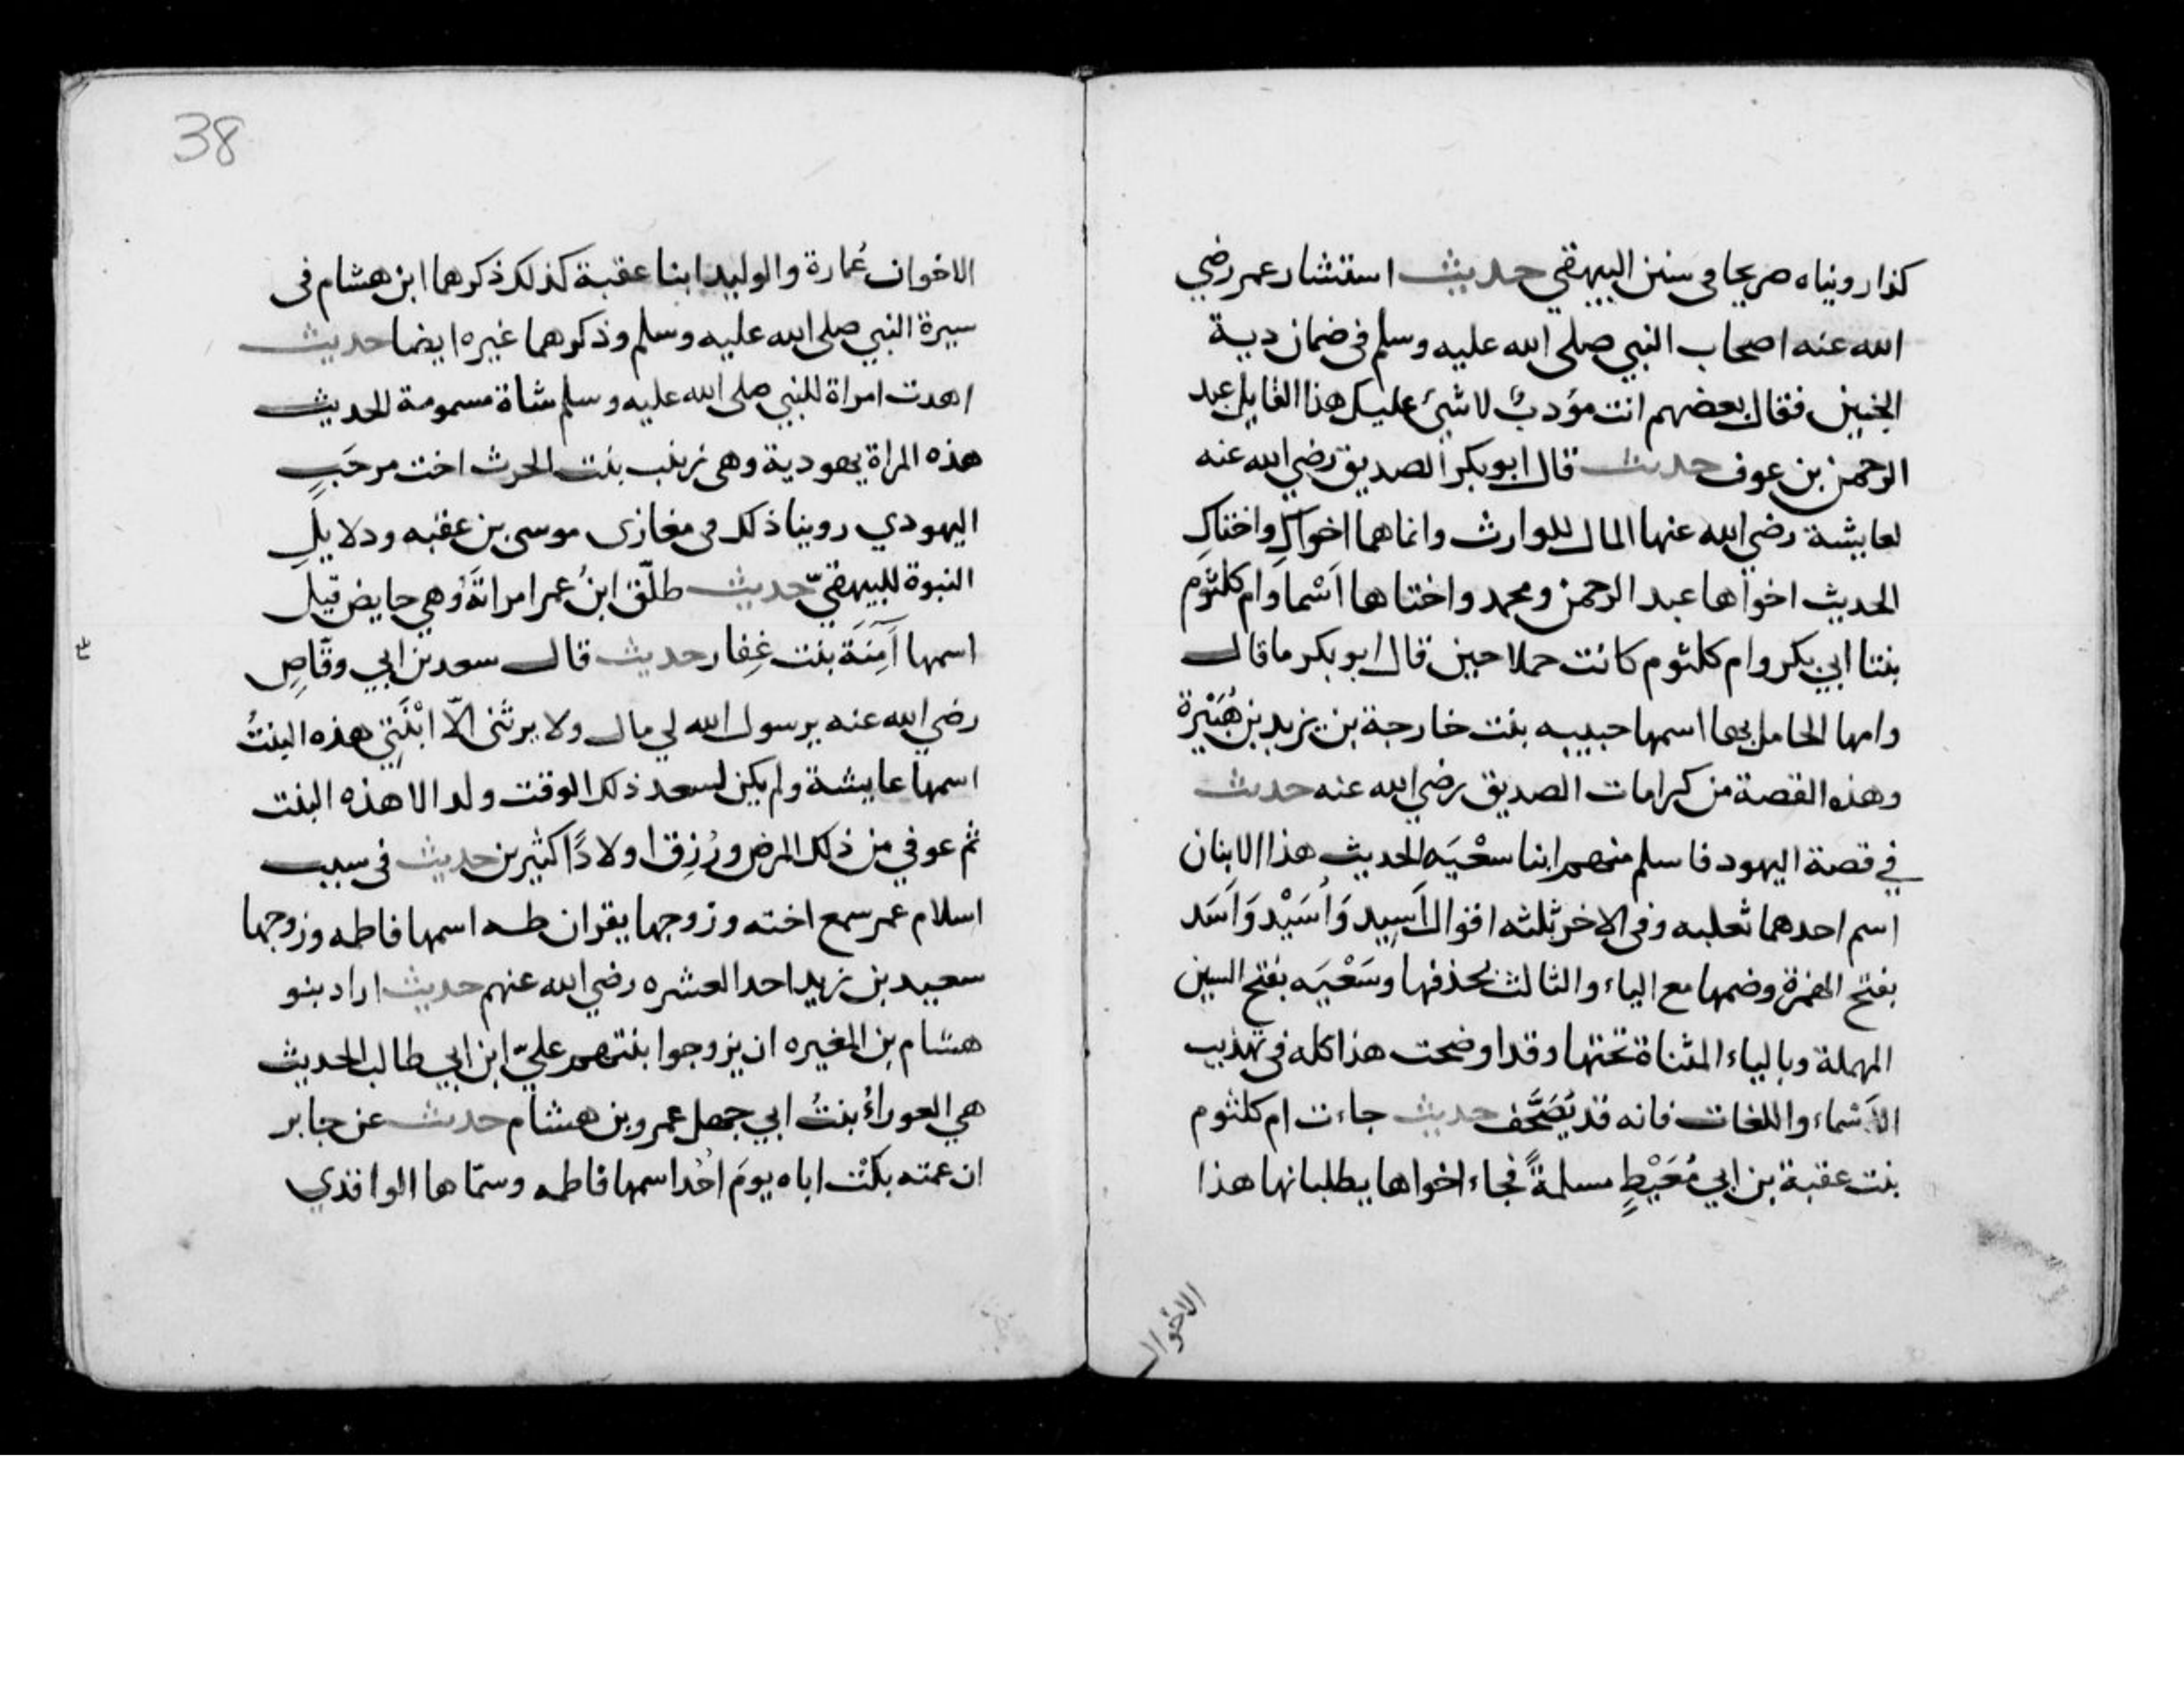 كذا رويناه صريحا في سنن البيهقي حديث استشار عمر رضي
الله عنه اصحاب النبي صلى الله عليه وسلم في ضمان دية
الجنين فقال بعضهم انت مؤدبٌ لا شيئ عليك هذا القايل عبد
الرحمن بن عوف حديث قال ابو بكر الصديق رضي الله عنه
لعايشة رضي الله عنها المال للوارث وانما هما اخواكِ واختاكِ
الحديث اخواها عبد الرحمن ومحمد واختاها اَسْما وام كلثوم
بنتا ابي بكر وام كلثوم كانت حملا حين قال ابو بكر ما قال
وامها الحامل بها اسمها حبيبه بنت خارجة بن يزيد بن هُبَيْرة
وهذه القصة من كرامات الصديق رضي الله عنه حديث
في قصة اليهود فاسلم منهم ابنا سعْيَه الحديث هذا الابنان
اسم احدهما ثعلبه وفي الاخر ثلثه اقوال اَسِيد وَاُسَيْد وَاَسَد
بفتح الهمزة وضمها مع الياء والثالث بحذفها وسَعْيَه بفتح السين
المهملة وبالياء المثناة تحتها وقد اوضحت هذا كله في تهذيب
الاَسْماء واللغات فانه قد يُصَحَّف حديث جاءت ام كلثوم
بنت عقبة بن ابي مُعَيْطٍ مسلمةً فجاء اخواها يطلبانها هذا
الاخوان
38
الاخوان عُمارة والوليد ابنا عقبة كذلك ذكرهما ابن هشام في
سيرة النبي صلى الله عليه وسلم وذكرهما غيره ايضا حديث
اهدت امراة للنبي صلى الله عليه وسلم شاة مسمومة الحديث
هذه المراة يهودية وهي زينب بنت الحرث اخت مرحَبٍ
اليهودي روينا ذلك في مغازى موسى بن عقبه ودلايلِ
النبوة للبيهقيّ حديث طلّق ابنُ عمر امراتَهُ وهي حايض قيل
اسمها آمِنَة بنت غِفار حديث قال سعد بن ابي وقّاصٍ
رضي الله عنه يرسول الله لي مال ولا يرثنى الّا ابْنَتِي هذه البنتُ
اسمها عايشة ولم يكن لسعد ذلك الوقت ولد الا هذه البنت
ثم عوفي من ذلك المرض ورُزِق اولادًا كثيرين حديث في سبب
اسلام عمر سمع اخته وزوجها يقران طه اسمها فاطمه وزوجها
سعيد بن زيد احد العشره رضي الله عنهم حديث اراد بنو
هشام بن المغيره ان يزوجوا بنتهم عليّ ابن ابي طالب الحديث
هي العوراءُ بنتُ ابي جهل عمرو بن هشام حديث عن جابر
ان عمته بكَتْ اباه يومَ اُحُد اسمها فاطمه وسمّاها الواقدي